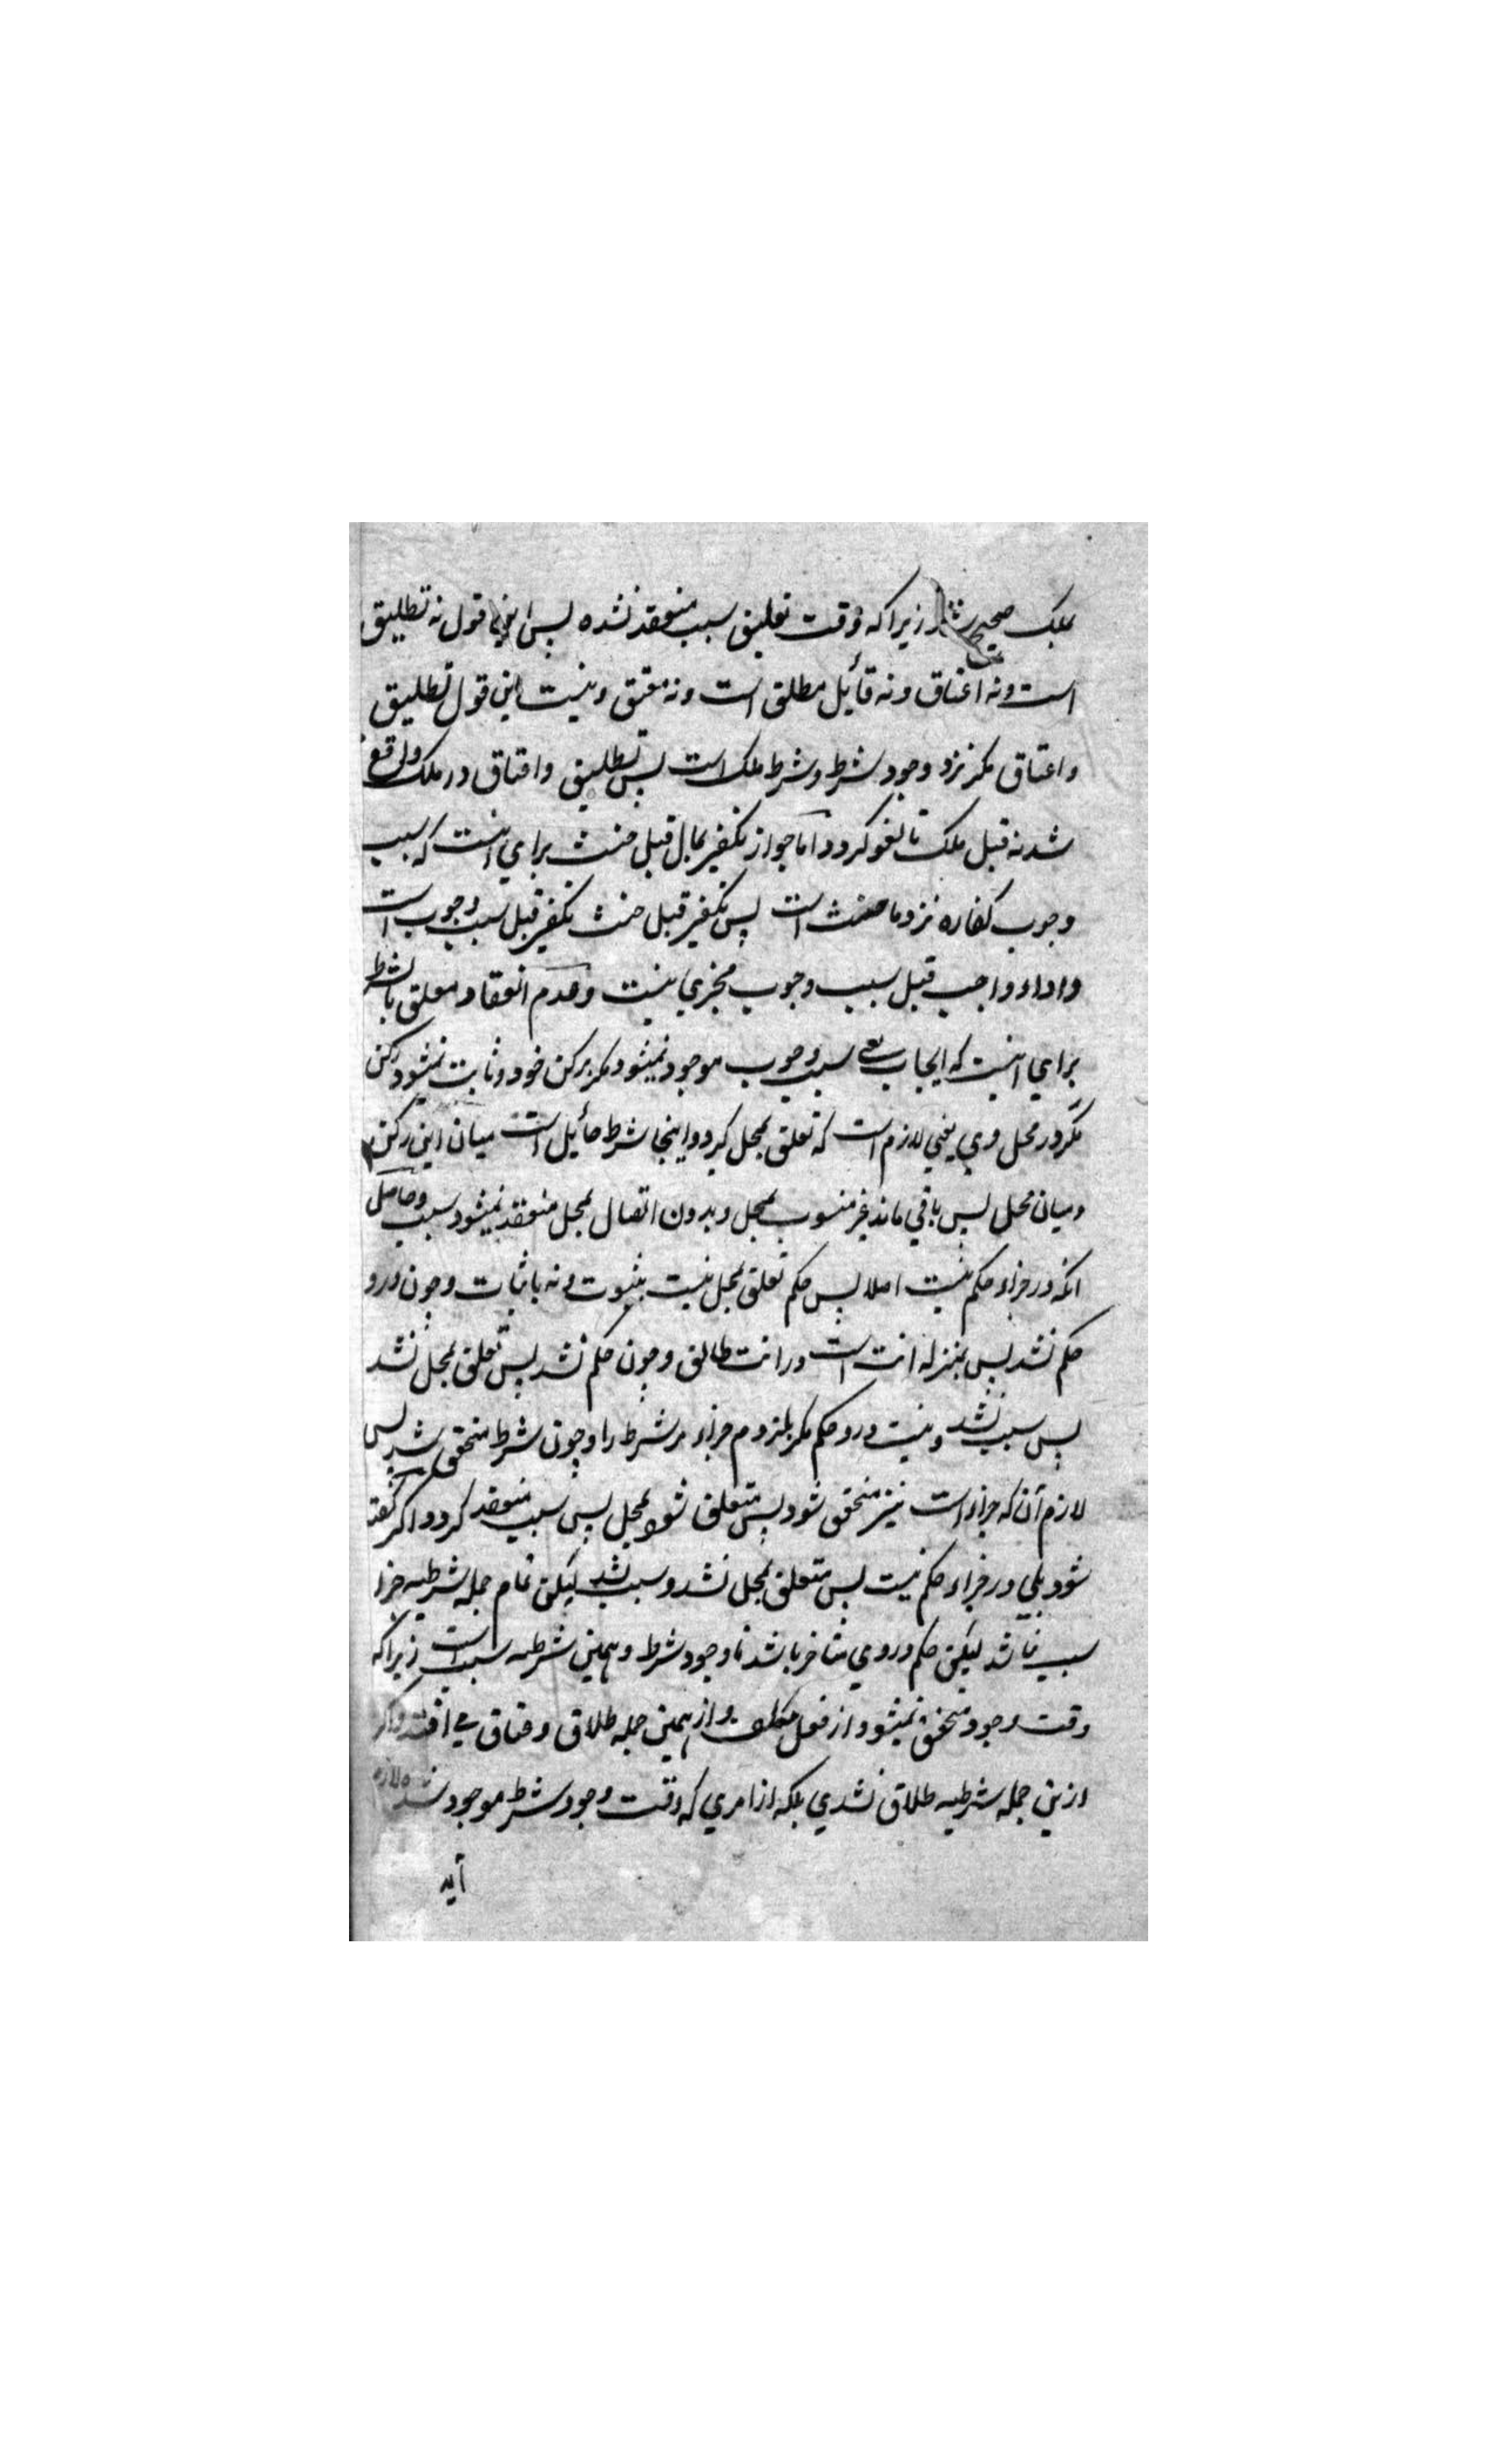 بملک صحیح شد زیرا که وقت تعلیق سبب منعقد نشده پس این قول نه تطلیق
است و نه اعتاق و نه قائل مطلق است و نه معتق و نیست این قول تطلیق
و اعتاق مکر نزد وجود شرط و شرط ملک است پس تطلیق و اعتاق در ملک واقع
شد نه قبل ملک تا لغو کردد اما جواز تکفیر بمال قبل حنث برای انیست که سبب
وجوب کفاره نزد ما حنث است پس تکفیر قبل حنث تکفیر قبل سبب وجوب است
و اداء واجب قبل سبب وجوب مجزی نیست و عدم انعقاد معلق بالشرط
برای انیست که ایجاب سبب وجوب موجود نمیشود مکر برکن خود و ثابت نمیشود رکن
مکر در محل وی یعنی لازم است که تعلق بمحل کیرد و اینجا شرط حائیل است میان این رکن
و میان محل پس باقی ماند غیر منسوب بمحل و بدون اتصال بمحل منعقد نمیشود سبب و حاصل
انکه در جزاء حکم نیست اصلا پس حکم تعلق بمحل نیست بثبوت و نه باثبات و چون درو
حکم نشد پس بمنزله انت است در انت طالق و چون حکم نشد پس تعلق بمحل نشد
پس سبب نشد و نیست درو حکم مکر بلزوم جزاء مر شرط را و چون شرط متحقق شد پس
لازم آن که جزاء است نیز متحقق شود پس متعلق شود بمحل پس سبب منعقد کردد اکر کفته
شود بلی در جزاء حکم نیست پس متعلق بمحل نشد و سبب نشد لیکن تمام جمله شرطیه چرا
سبب نباشد لیکن حکم در وی متاخر باشد تا وجود شرط و همین شرطیه سبب است زیرا که
وقت وجود متحقق نمیشود از فعل مکلف و از همین جمله طلاق و عتاق می افتد و اکر
ازین جمله شرطیه طلاق نشدی بلکه از امری که وقت وجود شرط موجود
آید